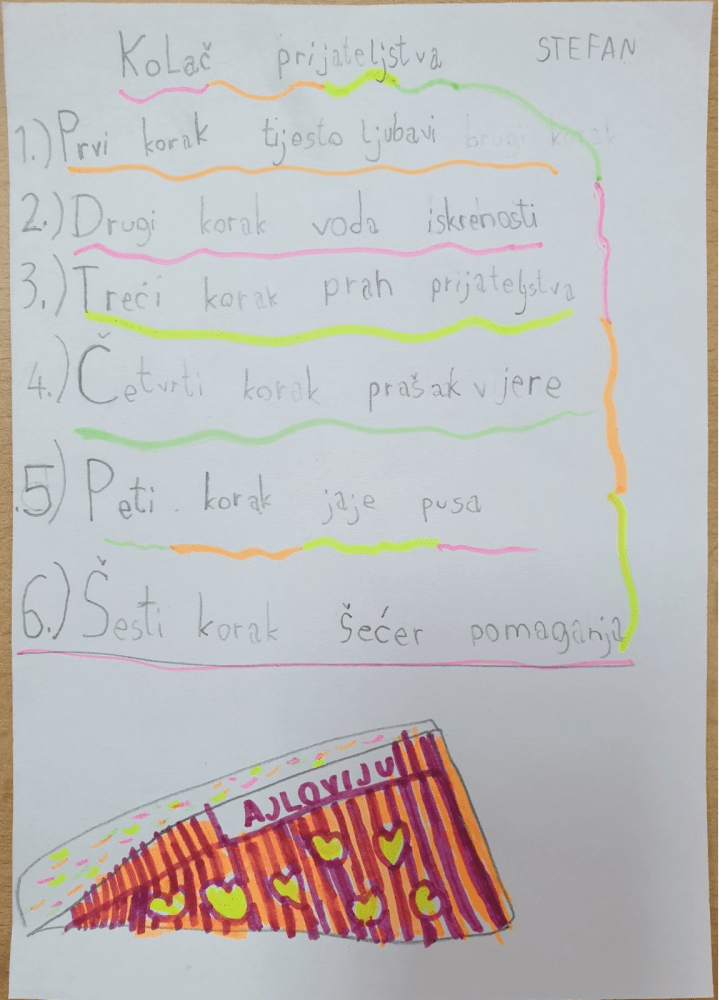 Kolač prijateljstva STEFAN
1.) Prvi korak tijesto ljubavi
2.) Drugi korak voda iskrenosti
3.) Treći korak prah prijateljstva
4.) Četvrti korak prašak vjere
5) Peti korak jaje pusa
6.) Šesti korak šećer pomaganja
AJLOVIJU